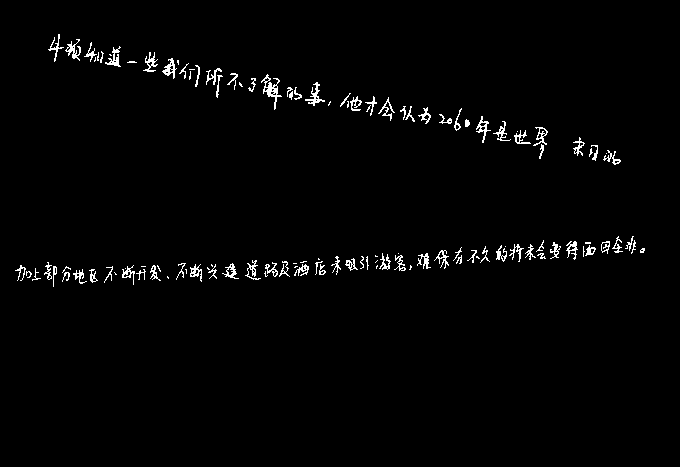 牛顿知道一些我们所不了解的事,他才会认为2060年是世界 末日的
加上部分地区不断开发、不断兴建道路及酒店来吸引游客,难保有不久的将来会变得面目全非。